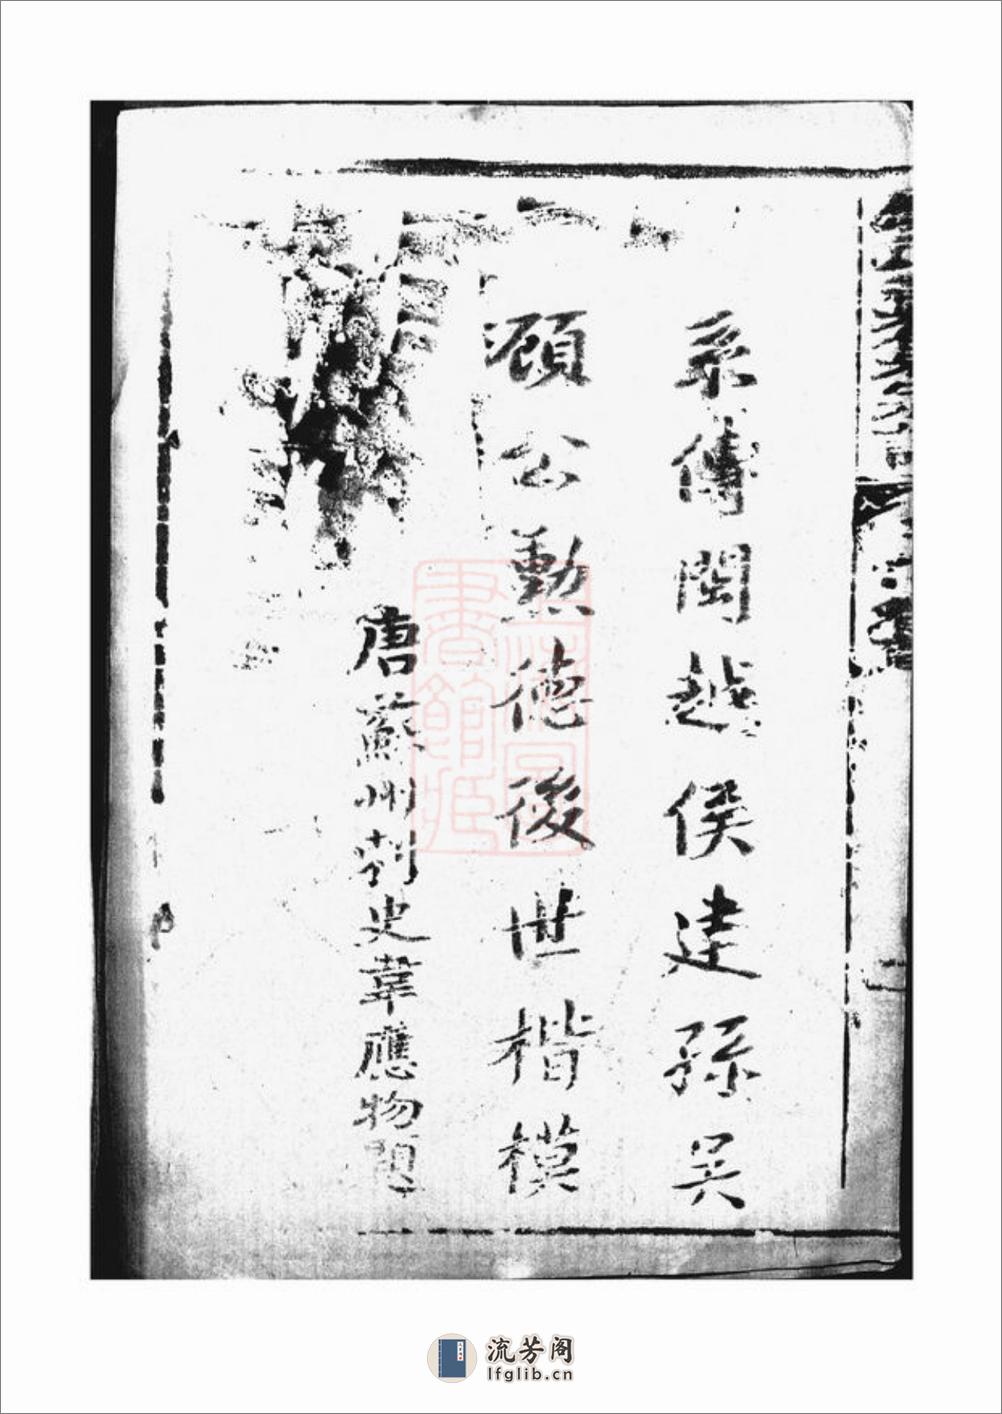 系傳閩越侯建孫吳
顧公勳德後世楷模
唐蘇州刺史韋應物題
上海圖書館藏
流芳阁
lfglib.cn